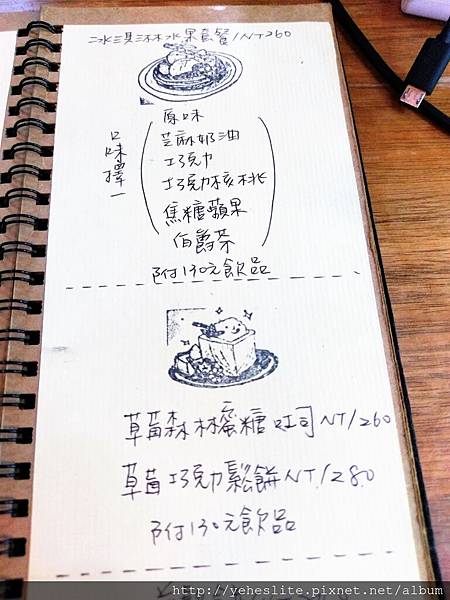 冰淇淋水果套餐/NT260
口味擇一
原味
芝麻奶油
巧克力
巧克力核桃
焦糖蘋果
伯爵茶
附130元飲品
草莓森林蜜糖吐司NT/260
草莓巧克力鬆餅NT/280
附130元飲品
http://yeheslite.pixnet.net/album